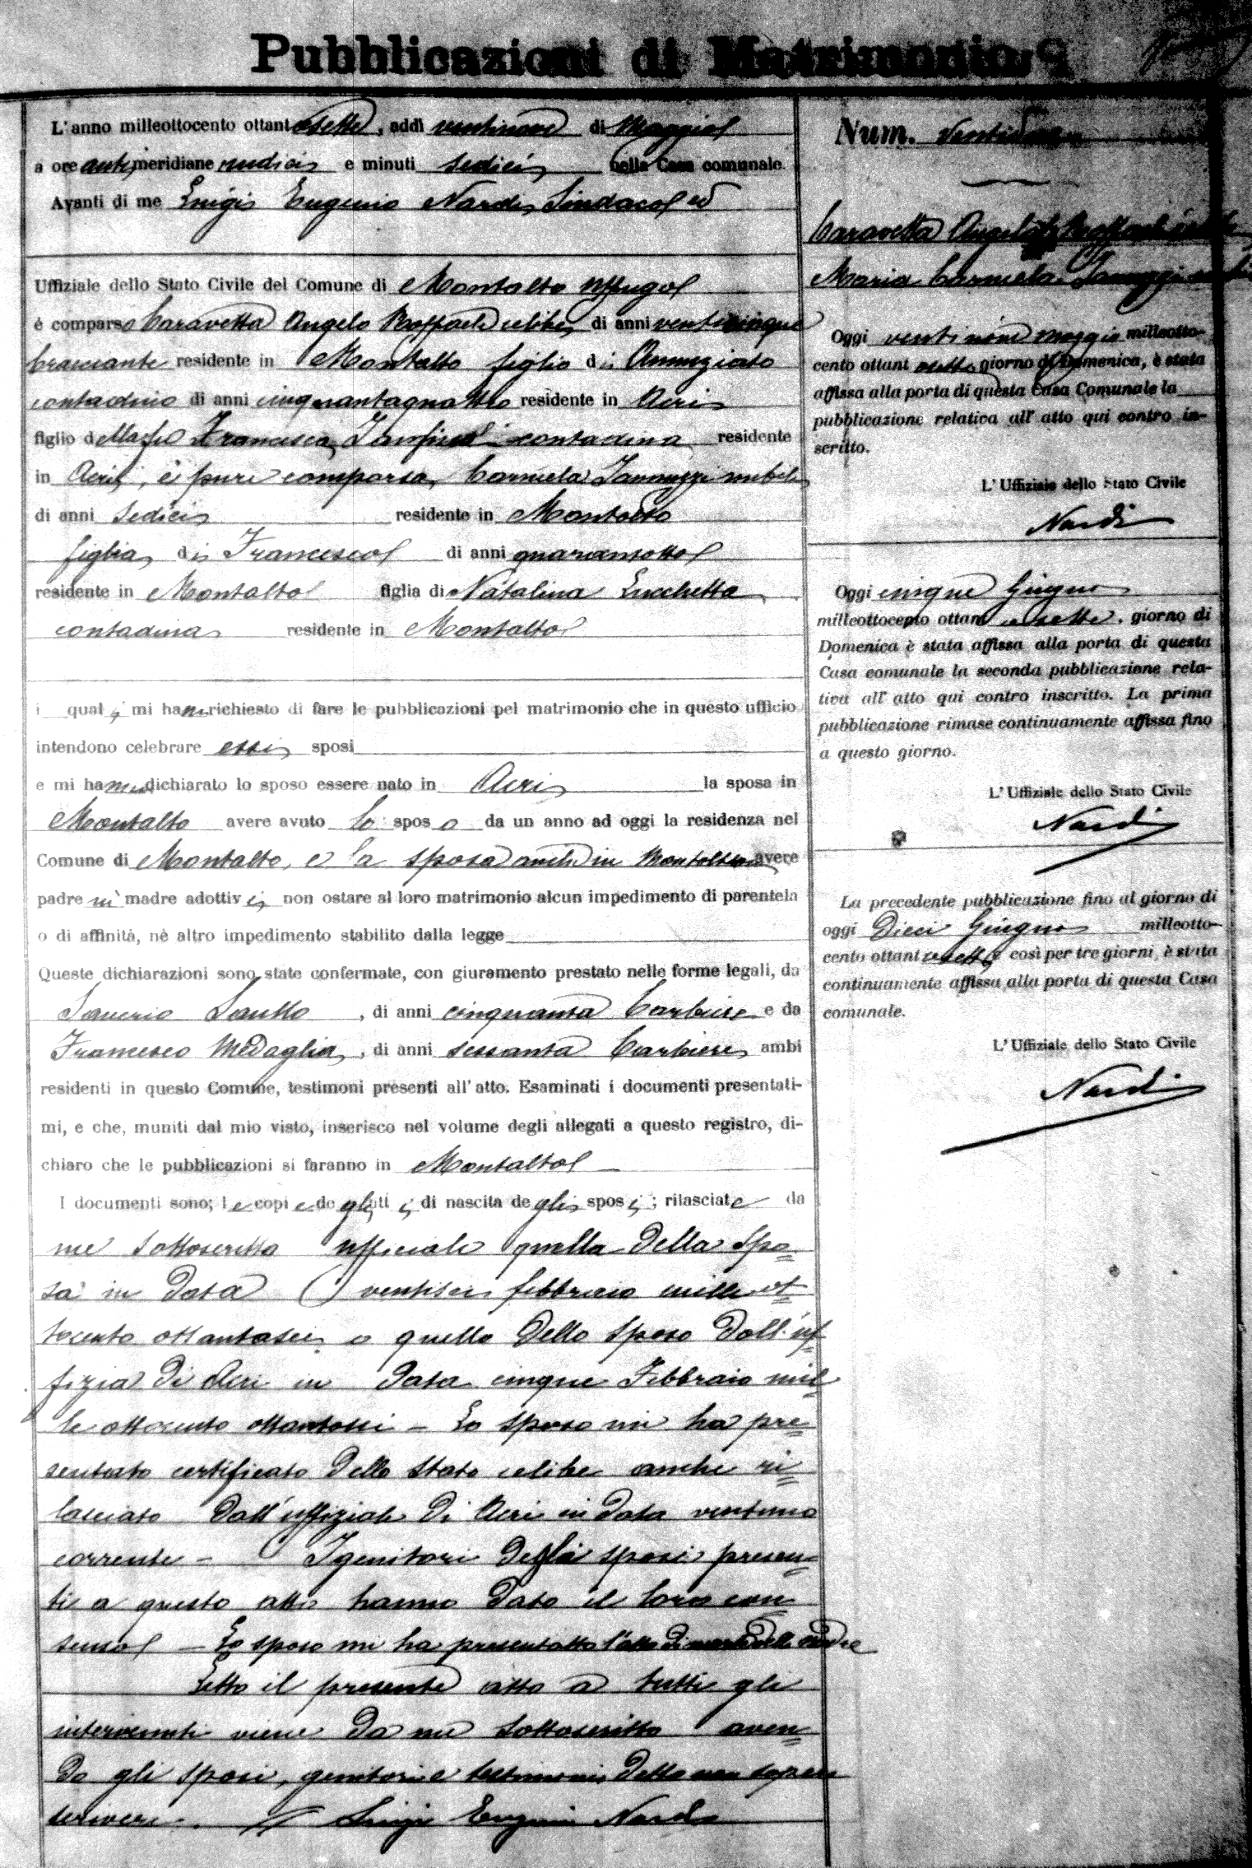 Pubblicazioni di Matrimonio
L'anno milleottocento ottantasette, addì ventinove di Maggio
a ore antimeridiane undici e minuti sedici nella Casa comunale.
Avanti di me Luigi Eugenio Nardi Sindaco ed
Uffiziale dello Stato Civile del Comune di Montalto Uffugo
è comparso Caravetta Angelo Raffaele celibe, di anni venticinque
bracciante residente in Montalto figlio di Annunziato
contadino di anni cinquantaquattro residente in Acri
figlio della fu Francesca contadina residente
in Acri, è pure comparsa, Carmela Iannuzzi nubile
di anni sedici residente in Montalto
figlia di Francesco di anni quarantotto
residente in Montalto figlia di Natalina Lucchetta
contadina residente in Montalto
i quali mi hanno richiesto di fare le pubblicazioni pel matrimonio che in questo ufficio
intendono celebrare essi sposi
e mi hanno dichiarato lo sposo essere nato in Acri la sposa in
Montalto avere avuto lo sposo da un anno ad oggi la residenza nel
Comune di Montalto, e la sposa anche in Montalto avere
padre nè madre adottivi, non ostare al loro matrimonio alcun impedimento di parentela
o di affinità, nè altro impedimento stabilito dalla legge
Queste dichiarazioni sono state confermate, con giuramento prestato nelle forme legali, da
Saverio, di anni cinquanta barbiere e da
Francesco Medaglia, di anni sessanta barbiere, ambi
residenti in questo Comune, testimoni presenti all'atto. Esaminati i documenti presentati-
mi, e che, muniti dal mio visto, inserisco nel volume degli allegati a questo registro, di-
chiaro che le pubblicazioni si faranno in Montalto
I documenti sono; le copie degli atti di nascita degli sposi; rilasciate da
me sottoscritto ufficiale quella della spo=
sa in data ventisei febbraio mille ot=
tocento ottantasei e quella dello sposo dall'uf=
fizia di Acri in data cinque Febbraio mil=
le ottocento - Lo sposo mi ha pre=
sentato certificato dello stato celibe anche ri=
lasciato dall'uffiziale di Acri in data ventuno
corrente - I genitori degli sposi presen=
ti a questo atto hanno dato il loro con=
senso - Lo sposo mi ha presentato l'atto di morte della madre
Letto il presente atto a tutti gli
intervenuti viene da me sottoscritto aven=
do gli sposi, genitori e testimoni detto non sapere
scrivere. Luigi Eugenio Nardi
Num. Ventidue
Caravetta Angelo Raffaele celibe
Maria Carmela Iannuzzi nubile
Oggi ventinove maggio milleotto-
cento ottantasette giorno di Domenica, è stata
affissa alla porta di questa Casa Comunale la
pubblicazione relativa all'atto qui contro in-
scritto.
L'Uffiziale dello Stato Civile
Nardi
Oggi cinque Giugno
milleottocento ottantasette, giorno di
Domenica è stata affissa alla porta di questa
Casa comunale la seconda pubblicazione rela-
tiva all'atto qui contro inscritto. La prima
pubblicazione rimase continuamente affissa fino
a questo giorno.
L'Uffiziale dello Stato Civile
Nardi
La precedente pubblicazione fino al giorno di
oggi Dieci Giugno milleotto-
cento ottantasette e così per tre giorni, è stata
continuamente affissa alla porta di questa Casa
comunale.
L'Uffiziale dello Stato Civile
Nardi